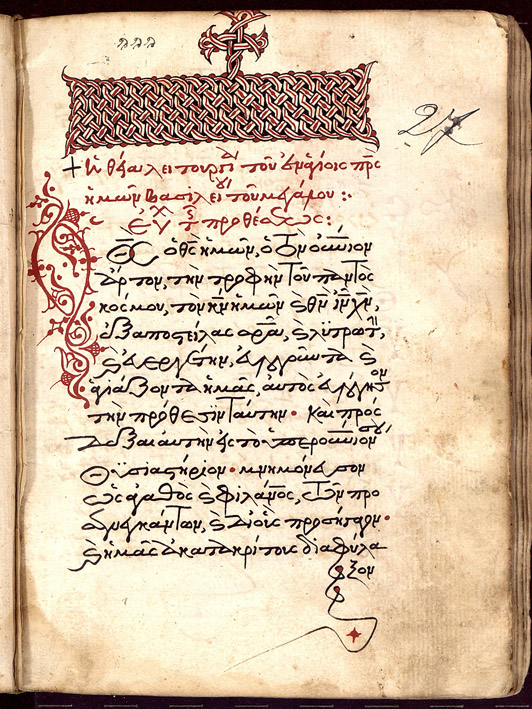 27
+ Ἡ θεία λειτουργία τοῦ ἐν ἁγίοις πρς
ἡμῶν Βασιλείου τοῦ μεγάλου :·
Εὐχ τ προθέσεως :
Ὁ θς ὁ θς ἡμῶν, ὁ τὸν οὐνιον
ἄρτον, τὴν τροφὴν τοῦ παντὸς
κόσμου, τὸν κν ἡμῶν ϗ θν ιν χν,
ἐξαποστείλας σρα, ϗ λυτρωτην,
ϗ εὐεργέτην, εὐλογοῦντα ϗ
ἁγιάζοντα ἡμᾶς, αὐτὸς εὐλόγησον
τὴν πρόθεσϊν ταύτην · καὶ πρόσ
δεξαι αὐτὴν εἰς τὸ ὑπερουνιόν σου
θυσιαστήριον · μνημόνευσον
ὡς ἀγαθὸς ϗ φιλανος, τῶν προ
ενεγκάντων, ϗ δι' οὓς προσήγαγον ·
ϗ ἡμᾶς ἀκατακρίτους διαφύλα
ξον